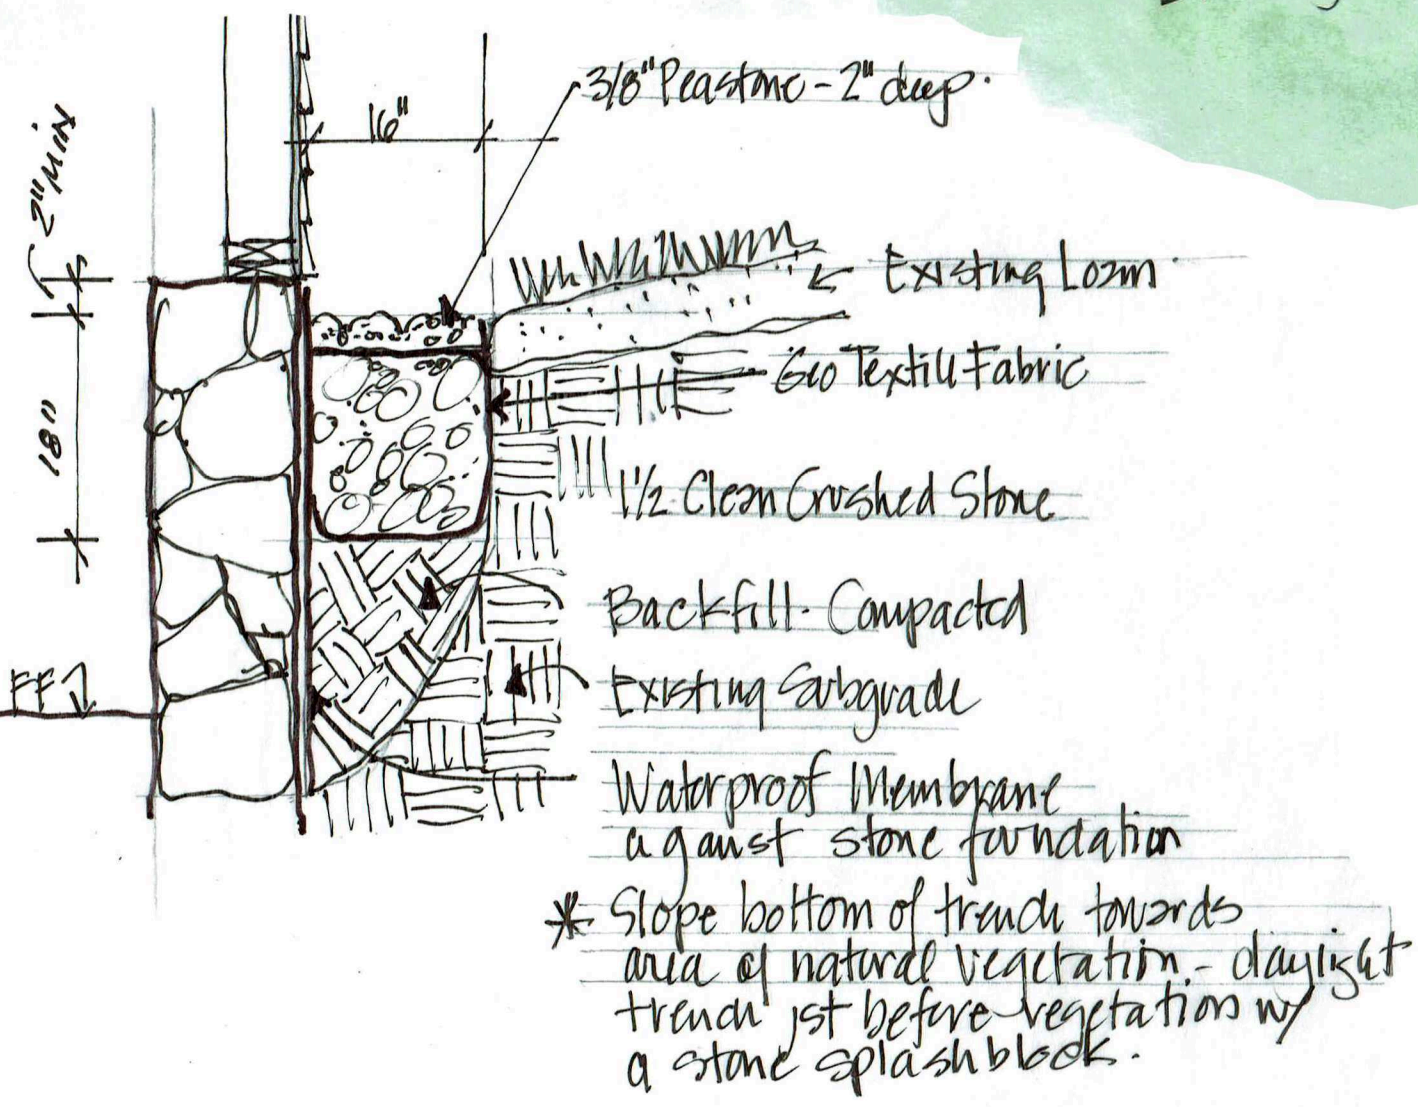 3/8" Peastone - 2" deep.
16"
2" MIN
Existing Loam
Geo Textill Fabric
18"
1 1/2 Clean Crushed Stone
Backfill. Compacted
Existing Subgrade
FF
Waterproof Membrane
against stone foundation
* Slope bottom of trench towards
area of natural vegetation - daylight
trench jst before vegetation w/
a stone splashblock.